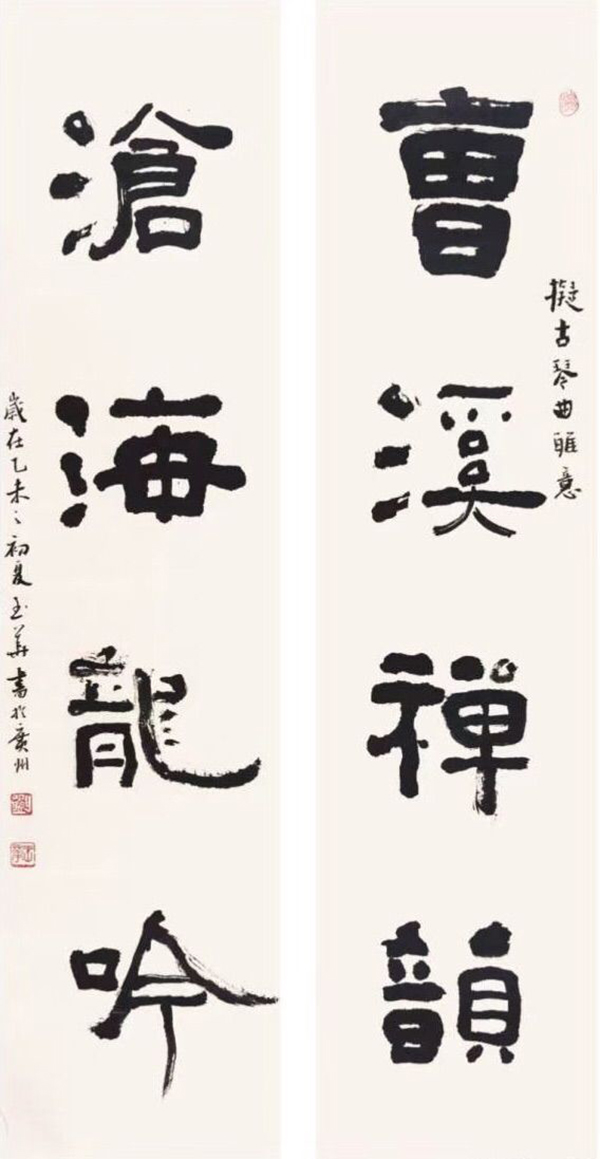 曹溪禅韻
擬古琴曲雅意
滄海龍吟
歲在乙未之初夏玉華書於廣州